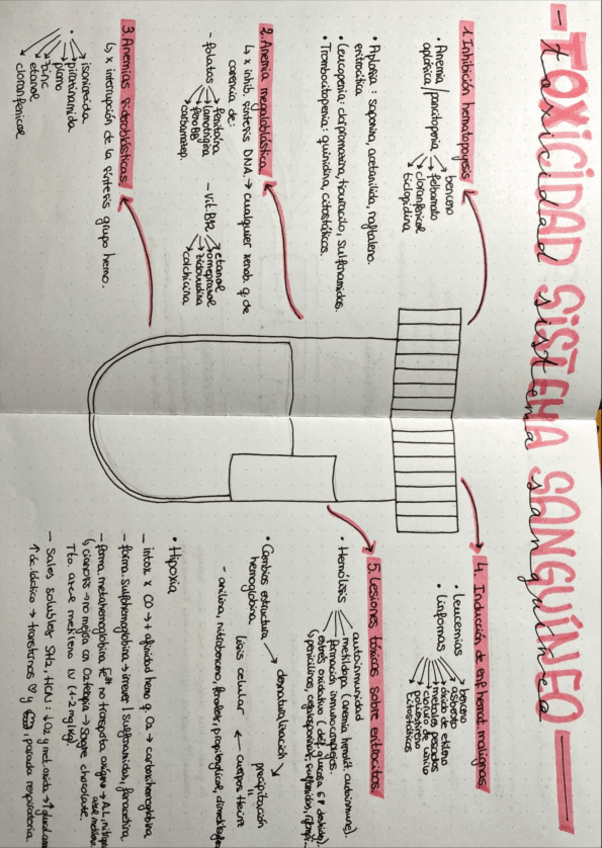 - TOXICIDAD SISTEMA SANGUÍNEO
toxicidad sistema sanguíneo
1. Inhibición hematopoyesis
• Anemia
aplásica/pancitopenia
benceno
felbamato
cloranfenicol
ticlopidina
• Aplasia: saponina, acetanilida, naftaleno.
eritrocítica
• Leucopenia: clorpromazina, tiouracilo, sulfonamidas.
• Trombocitopenia: quinidina, citostáticos.
2. Anemia megaloblástica
↳ x inhib. síntesis DNA. → cualquier xenob. q. de
carencia de:
- folatos
fenitoína
lamotrigina
fenoBB
carbamazep.
- Vit. B12
etanol
omeprazol
zidovudina
colchicina
3. Anemias sideroblásticas
↳ x interrupción de la síntesis grupo hemo.
•
isoniacida
pirazinamida
plomo
zinc
etanol
cloranfenicol
4. Inducción de enf. hemat. malignas
• Leucemias
• Linfomas
benceno
asbesto
óxido de etileno
metales pesados
cloruro de vinilo
poliestireno
citostáticos
5. Lesiones tóxicas sobre eritrocitos.
• Hemólisis
autoinmunidad
metildopa (anemia hemolít. autoinmune).
formación inmunocomplejos.
estrés oxidativo (déf. glucosa 6P deshidro).
↳ penicilinas, cefalosporinas, sulfamidas,
• Cambios estructura → desnaturalización → precipitación
hemoglobina
lisis celular ← cuerpos Heinz
- anilina, nitrobenceno, fenoles, propilenglicol,
• Hipoxia
- intox x CO → + afinidad hemo q. O2 → carboxihemoglobina
- forma. sulfohemoglobina → irrever / sulfonamidas, fenacetina.
- forma metahemoglobina Fe³⁺ no transporta oxígeno → A.L,
↳ cianosis → no mejora con O2 terapia → sangre chocolate.
Tto. azul metileno IV (1-2 mg/kg).
- Sales solubles SH2, HCN: ↓O2 y met. oxida →
↑ác. láctico → trastornos ♡ y parada respiratoria.